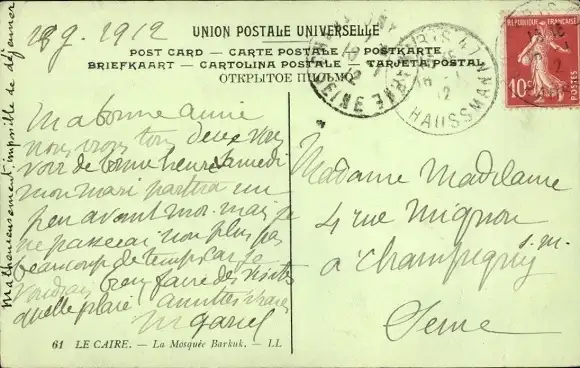 1912
UNION POSTALE UNIVERSELLE
POST CARD — CARTE POSTALE — POSTKARTE
BRIEFKAART — CARTOLINA POSTALE — TARJETA POSTAL
ОТКРЫТОЕ ПИСЬМО
RÉPUBLIQUE FRANÇAISE
10c
POSTES
PARIS 47
HAUSSMANN
Malheureusement impossible de déjeuner
Ma bonne amie
nous irons tous deux vous
voir de bonne heure Samedi
mon mari partira un
peu avant moi. mais je
ne passerai non plus pas
beaucoup de temps car je
voudrais bien faire des visites
quelle
Madame
4 rue Mignon
à Champigny
s. m.
Seine
61 LE CAIRE. — La Mosquée Barkuk. — LL